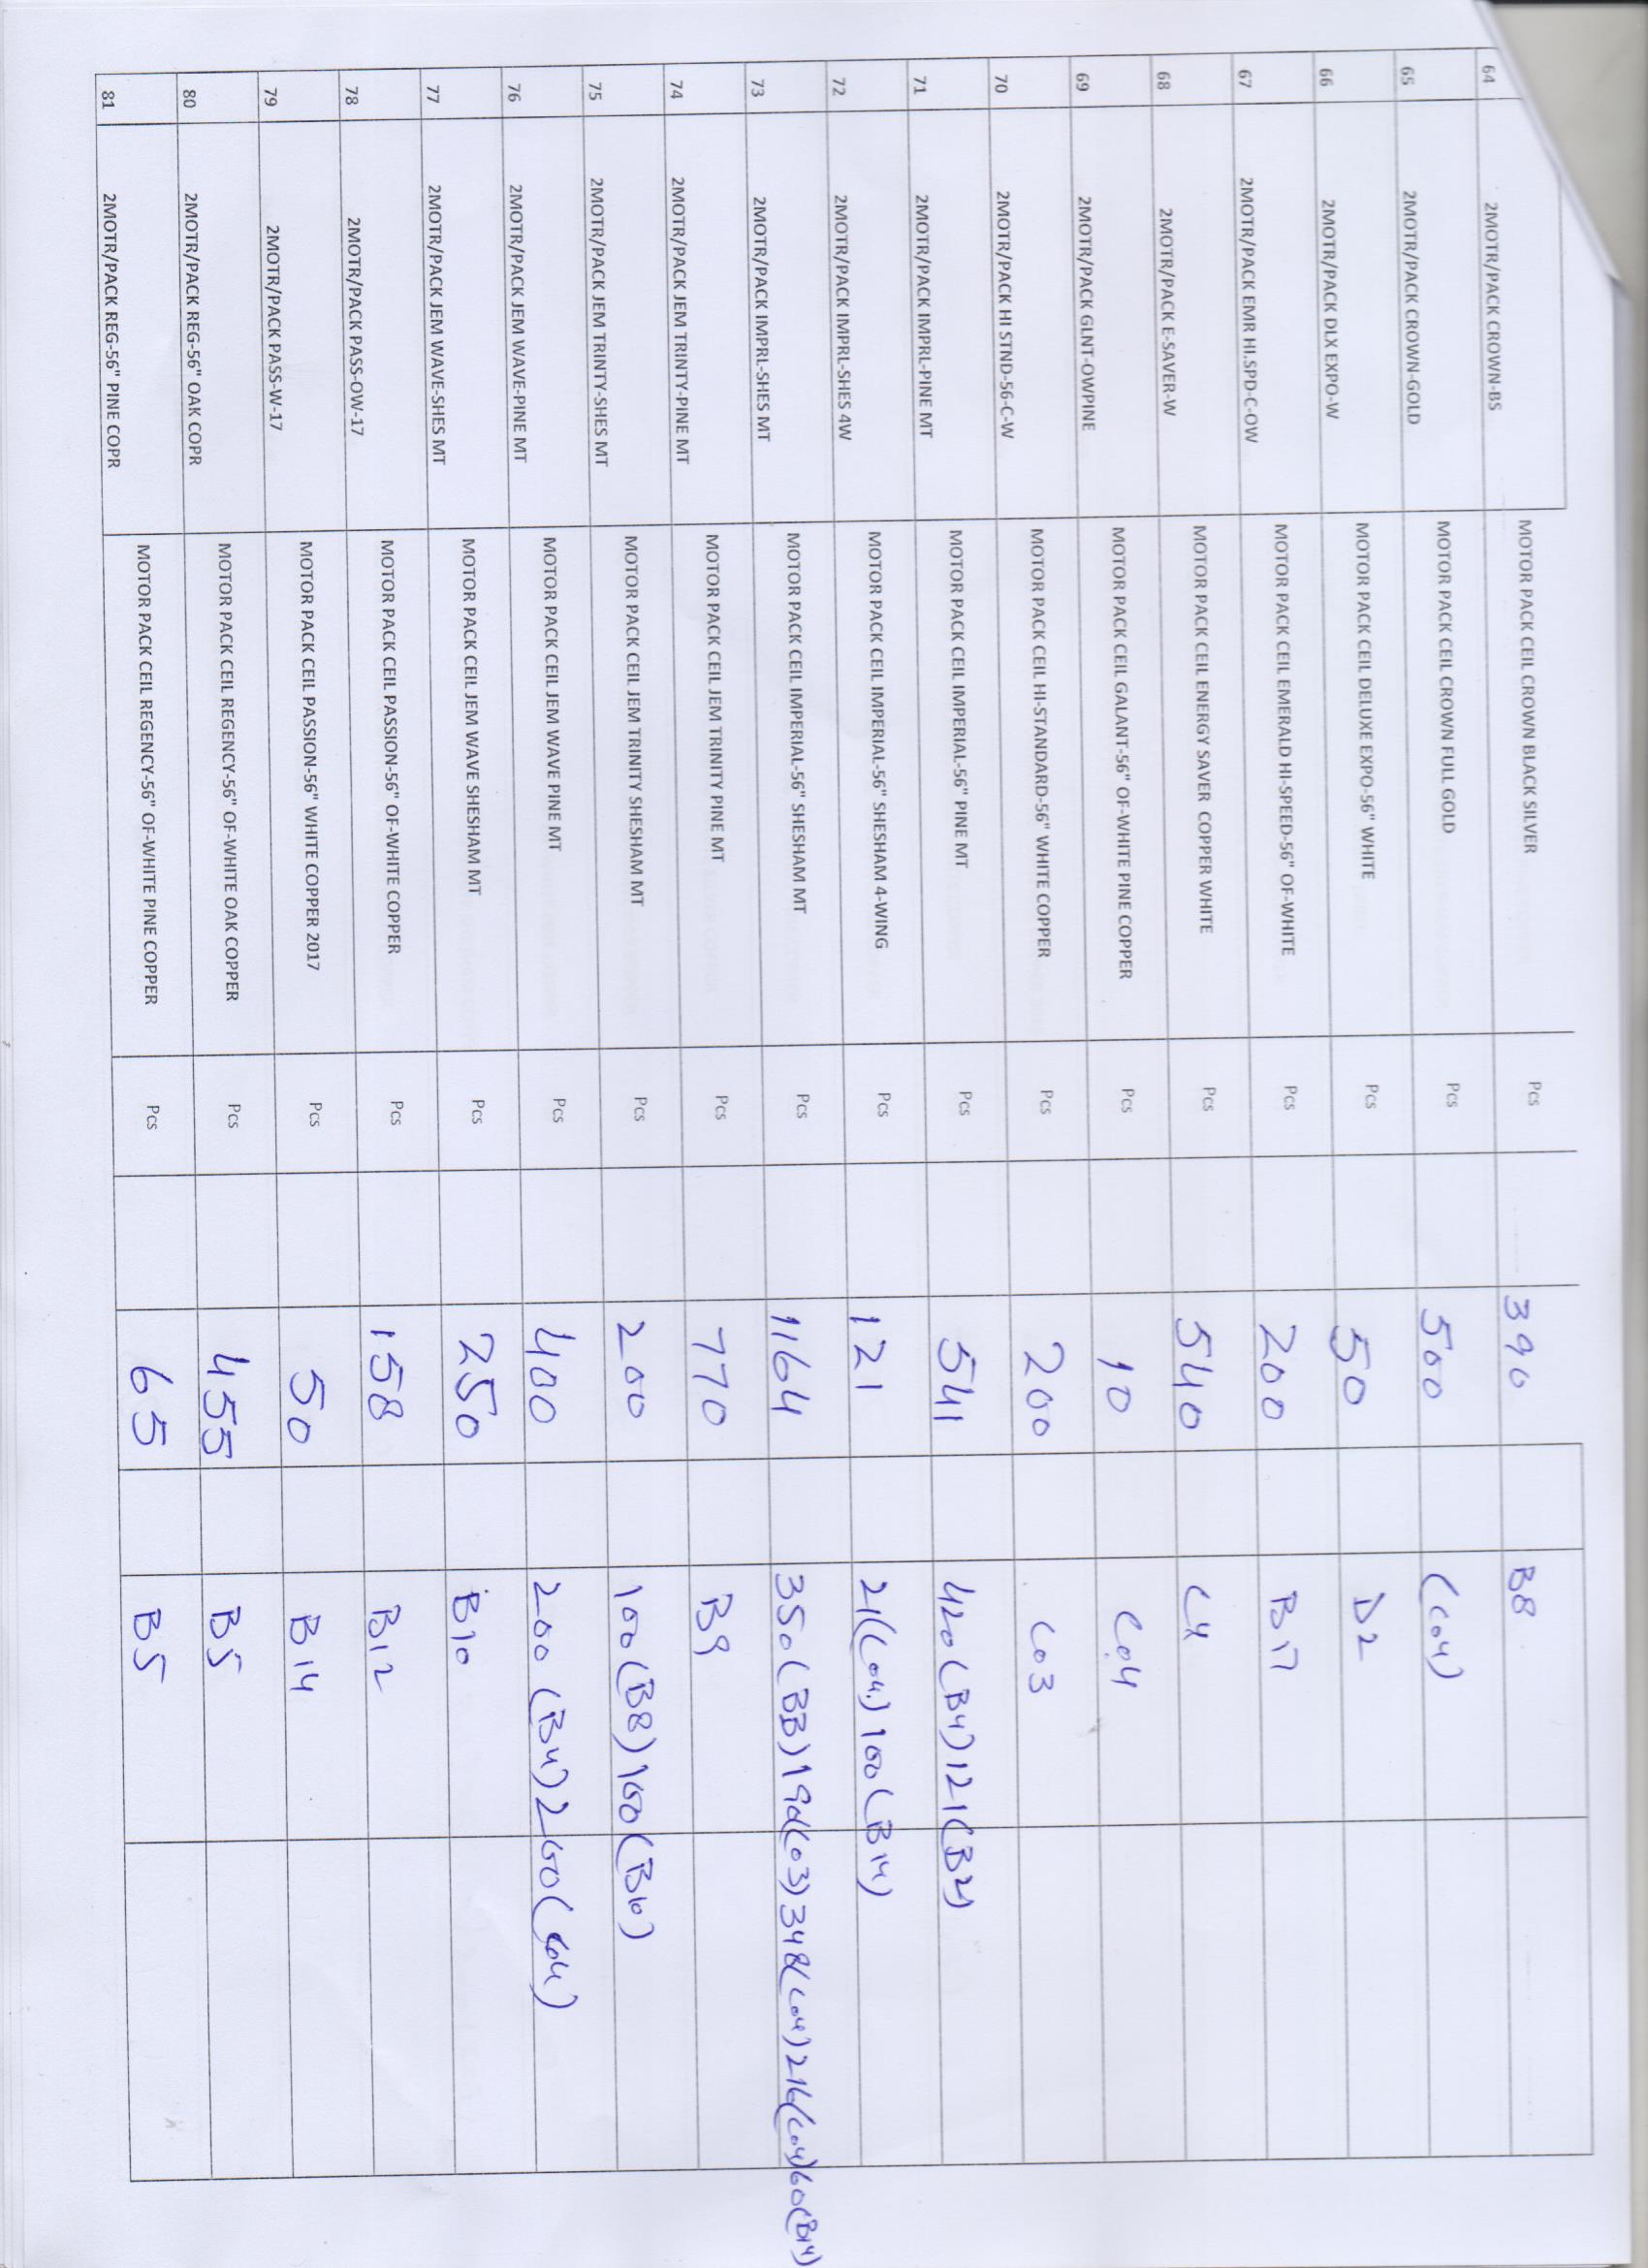 64 2MOTR/PACK CROWN-BS MOTOR PACK CEIL CROWN BLACK SILVER Pcs 390 B8
65 2MOTR/PACK CROWN-GOLD MOTOR PACK CEIL CROWN FULL GOLD Pcs 500 (C04)
66 2MOTR/PACK DLX EXPO-W MOTOR PACK CEIL DELUXE EXPO-56" WHITE Pcs 50 D2
67 2MOTR/PACK EMR HI.SPD-C-OW MOTOR PACK CEIL EMERALD HI-SPEED-56" OF-WHITE Pcs 200 B17
68 2MOTR/PACK E-SAVER-W MOTOR PACK CEIL ENERGY SAVER COPPER WHITE Pcs 540 C4
69 2MOTR/PACK GLNT-OWPINE MOTOR PACK CEIL GALANT-56" OF-WHITE PINE COPPER Pcs 10 C04
70 2MOTR/PACK HI STND-56-C-W MOTOR PACK CEIL HI-STANDARD-56" WHITE COPPER Pcs 200 C03
71 2MOTR/PACK IMPRL-PINE MT MOTOR PACK CEIL IMPERIAL-56" PINE MT Pcs 541 420(B4)121(B2)
72 2MOTR/PACK IMPRL-SHES 4W MOTOR PACK CEIL IMPERIAL-56" SHESHAM 4-WING Pcs 121 21(C04)100(B14)
73 2MOTR/PACK IMPRL-SHES MT MOTOR PACK CEIL IMPERIAL-56" SHESHAM MT Pcs 1164 350(B3)190(C03)348(C04)216(C04)60(B14)
74 2MOTR/PACK JEM TRINTY-PINE MT MOTOR PACK CEIL JEM TRINITY PINE MT Pcs 770 B9
75 2MOTR/PACK JEM TRINTY-SHES MT MOTOR PACK CEIL JEM TRINITY SHESHAM MT Pcs 200 100(B8)100(B10)
76 2MOTR/PACK JEM WAVE-PINE MT MOTOR PACK CEIL JEM WAVE PINE MT Pcs 400 200(B4)200(C04)
77 2MOTR/PACK JEM WAVE-SHES MT MOTOR PACK CEIL JEM WAVE SHESHAM MT Pcs 250 B10
78 2MOTR/PACK PASS-OW-17 MOTOR PACK CEIL PASSION-56" OF-WHITE COPPER Pcs 158 B12
79 2MOTR/PACK PASS-W-17 MOTOR PACK CEIL PASSION-56" WHITE COPPER 2017 Pcs 50 B14
80 2MOTR/PACK REG-56" OAK COPR MOTOR PACK CEIL REGENCY-56" OF-WHITE OAK COPPER Pcs 455 B5
81 2MOTR/PACK REG-56" PINE COPR MOTOR PACK CEIL REGENCY-56" OF-WHITE PINE COPPER Pcs 65 B5